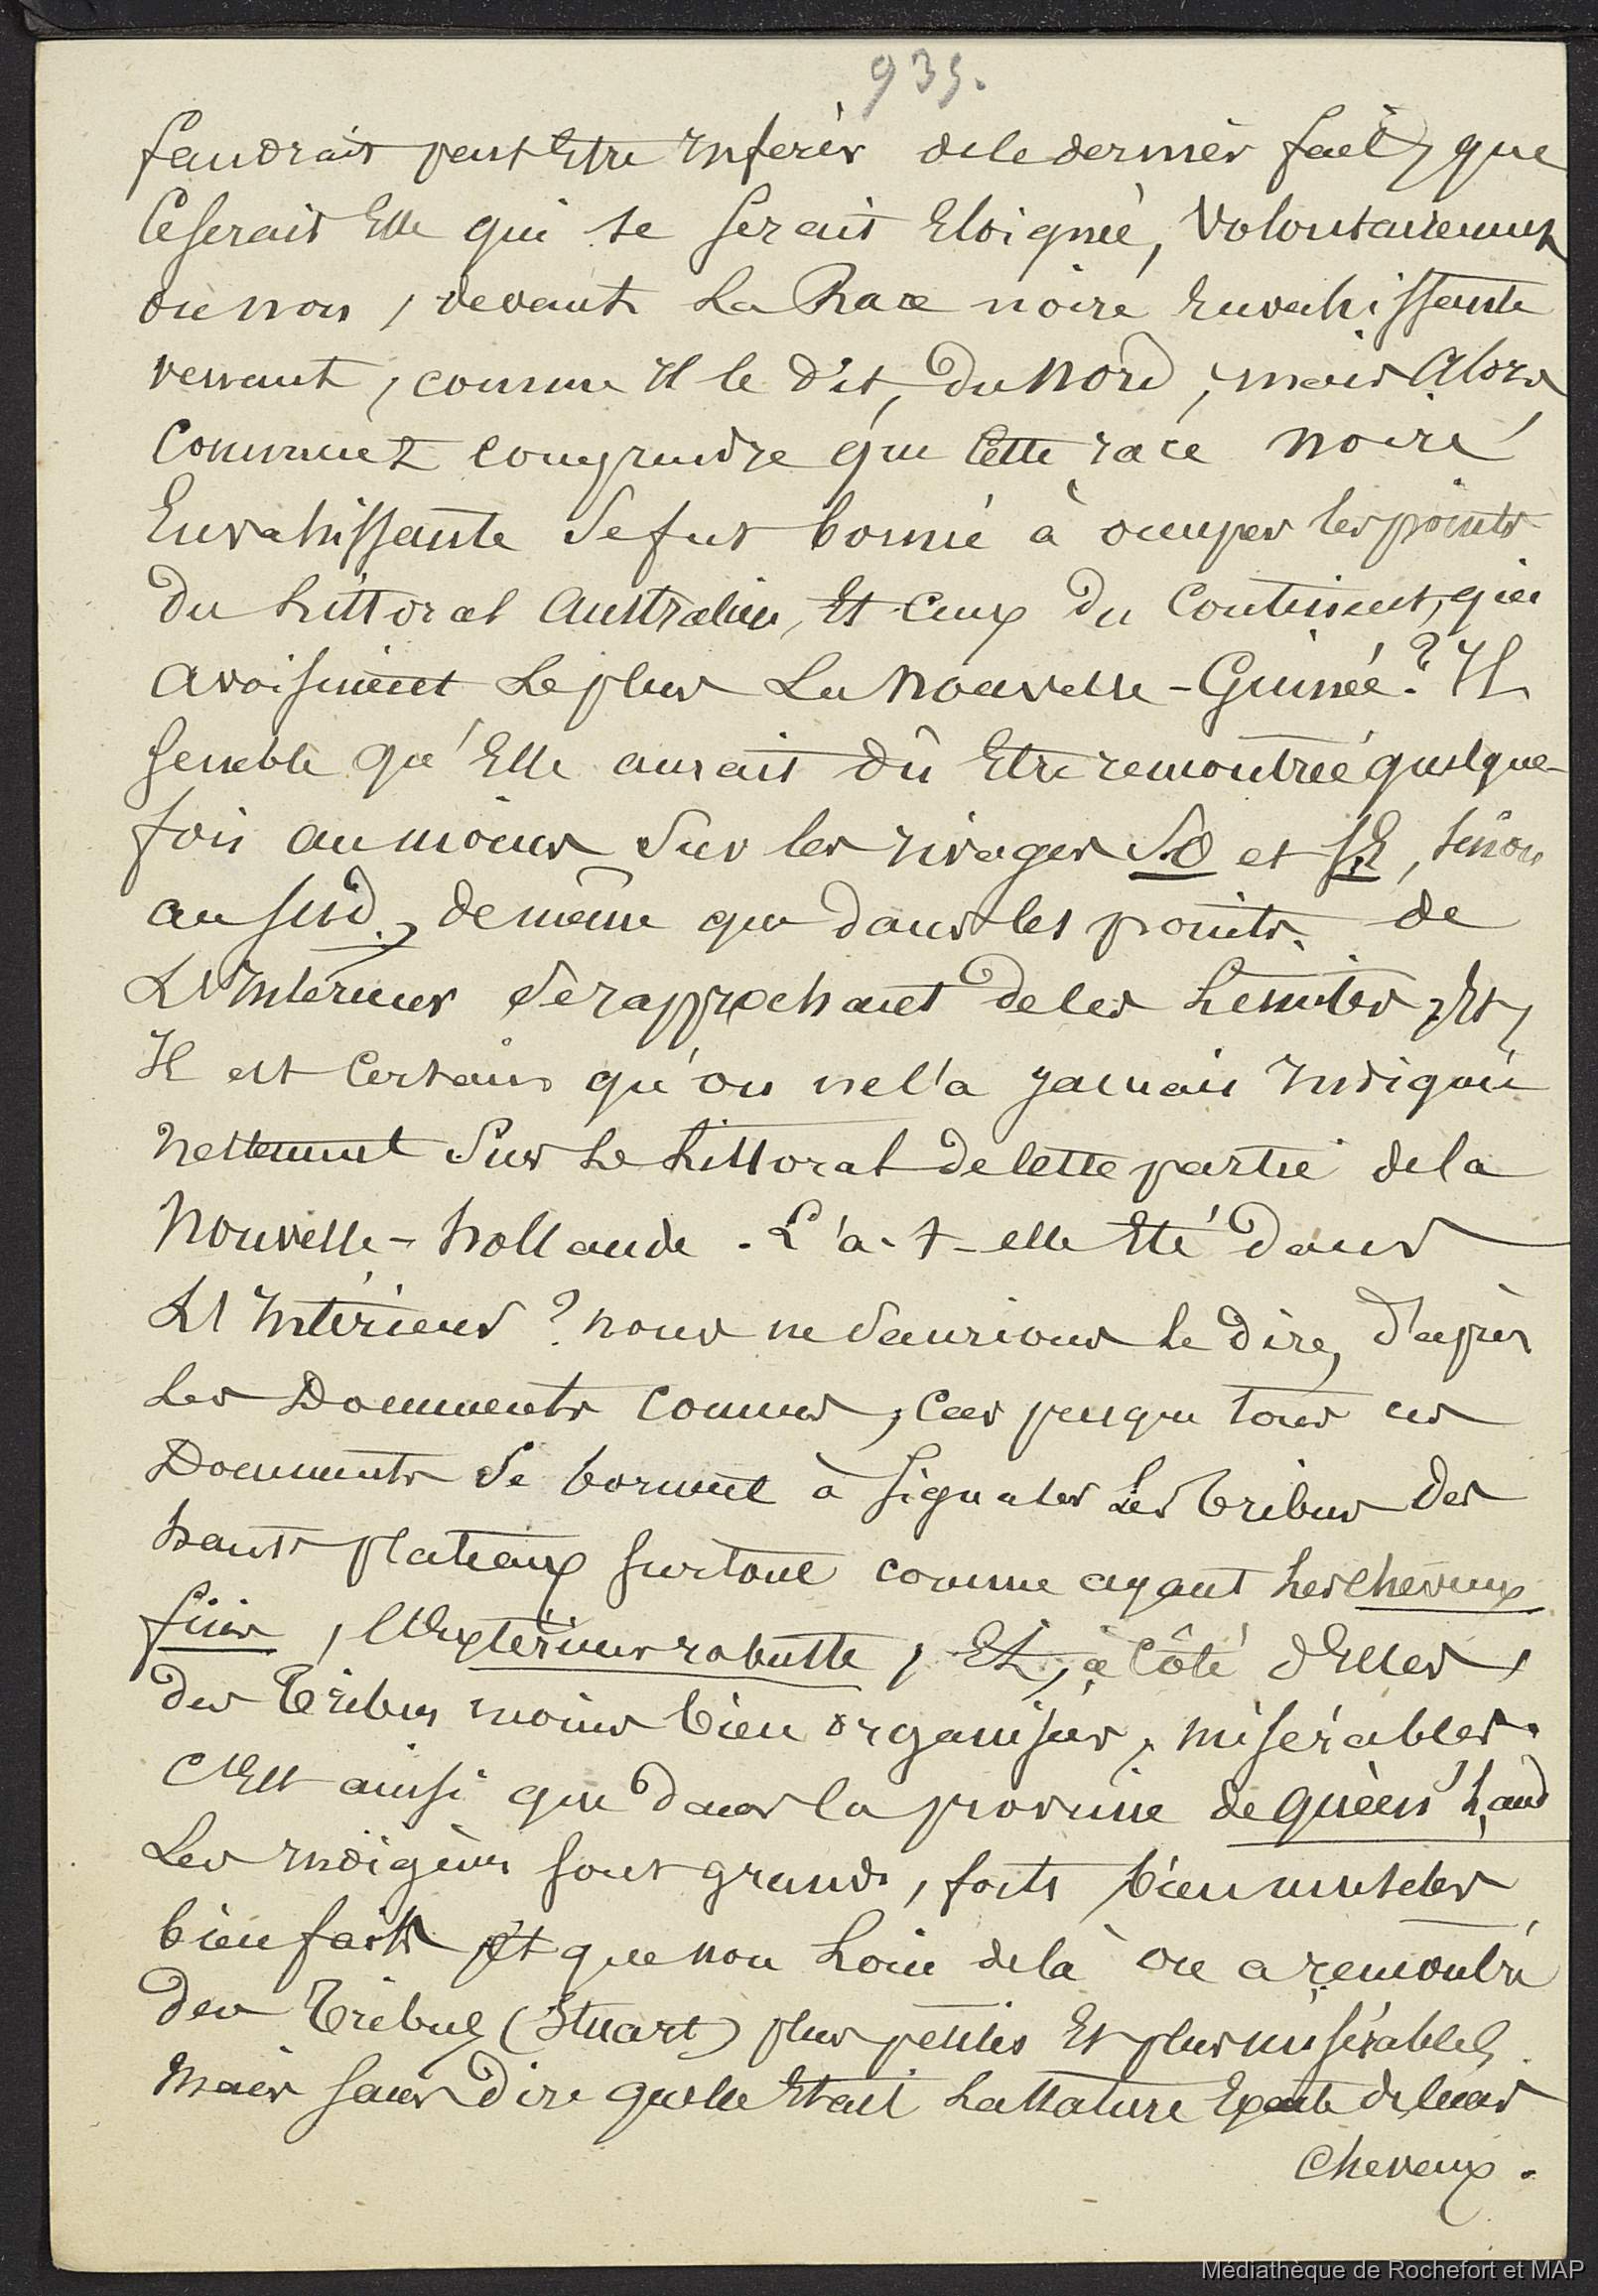 935.
faudrait peut Etre Inférér de ce dernier fait, que
Ce serait Elle qui se serait Eloignée, Volontairement
ou non, devant La Race noire Envahissante
venant, comme Il le dit, du Nord ; mais Alors
Comment comprendre que Cette race noire
Envahissante Se fut bornée à occuper les points
du Littoral Australien, Et Ceux du Continent, qui
avoisinent Le plus La Nouvelle-Guinée ? Il
semble qu'Elle aurait dû Etre remontrée quelque-
fois au moins Sur les rivages S.O et S.E, sinon
au Sud, de même que dans les points de
L'Intérieur Se rapprochant de ces Limites, Et,
Il est Certain qu'on ne l'a jamais Indiquée
Nettement Sur Le Littoral de cette partie de la
Nouvelle-hollande. L'a-t-elle Eté dans
L'Intérieur ? nous ne Saurions Le dire, d'après
Les Documents Connus, Car presque tous ces
Documents Se bornent à Signaler Les Tribus des
hauts plateaux surtout comme ayant Les cheveux
fins, L'Extérieur robuste, Et, à Côté d'Elles,
des Tribus moins bien organisées, misérables.
C'Est ainsi que dans la province de Queen's Land
Les Indigènes sont grands, forts bien musclés
bien faits Et que non Loin de là on a remontré
des Tribus (Stuart) plus petites Et plus misérables,
Mais sans dire quelle Etait La Nature Exacte de leurs
Cheveux.
Médiathèque de Rochefort et MAP